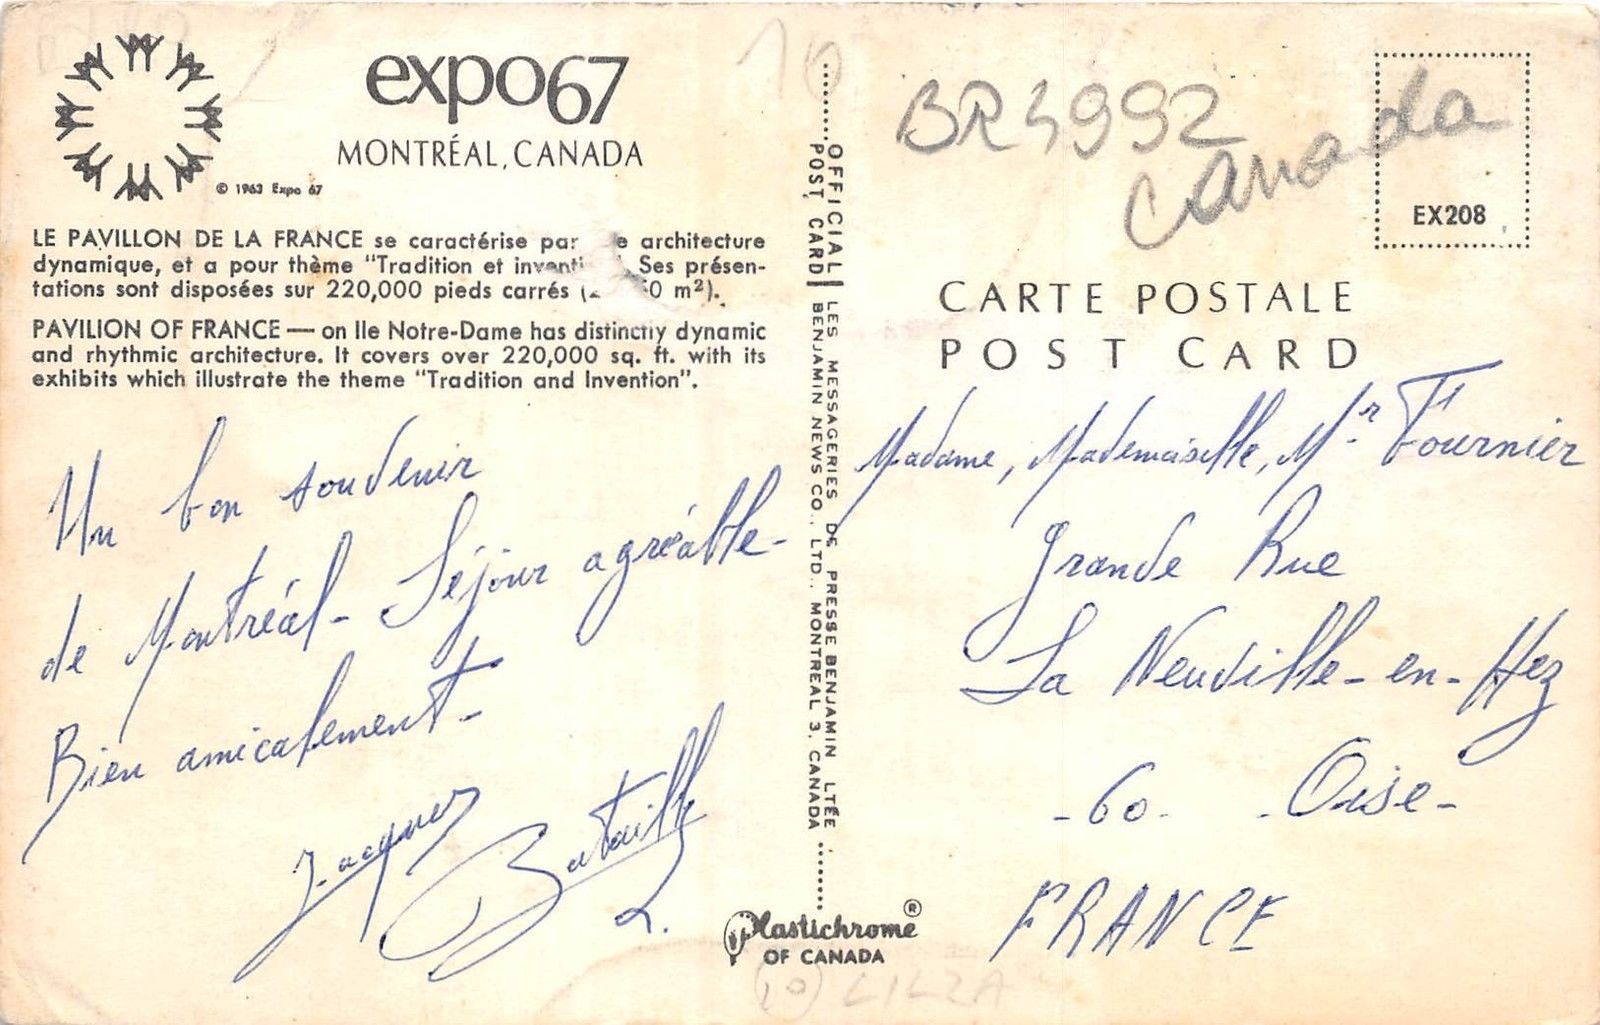 expo67
MONTRÉAL, CANADA
© 1963 Expo 67
LE PAVILLON DE LA FRANCE se caractérise par architecture
dynamique, et a pour thème "Tradition et Ses présen-
tations sont disposées sur 220,000 pieds carrés m²).
PAVILION OF FRANCE — on Ile Notre-Dame has distinctly dynamic
and rhythmic architecture. It covers over 220,000 sq. ft. with its
exhibits which illustrate the theme "Tradition and Invention".
Un bon souvenir
de Montréal - Séjour agréable -
Bien amicalement -
Jacques
Bataille
OFFICIAL LES MESSAGERIES DE PRESSE BENJAMIN LTÉE
POST CARD BENJAMIN NEWS CO., LTD., MONTREAL 3, CANADA
Plastichrome®
OF CANADA
10
BR 5992
Canada
EX208
CARTE POSTALE
POST CARD
Madame, Mademoiselle, Mr Fournier
Grande Rue
La Neuville-en-Hez
-60- -Oise-
FRANCE